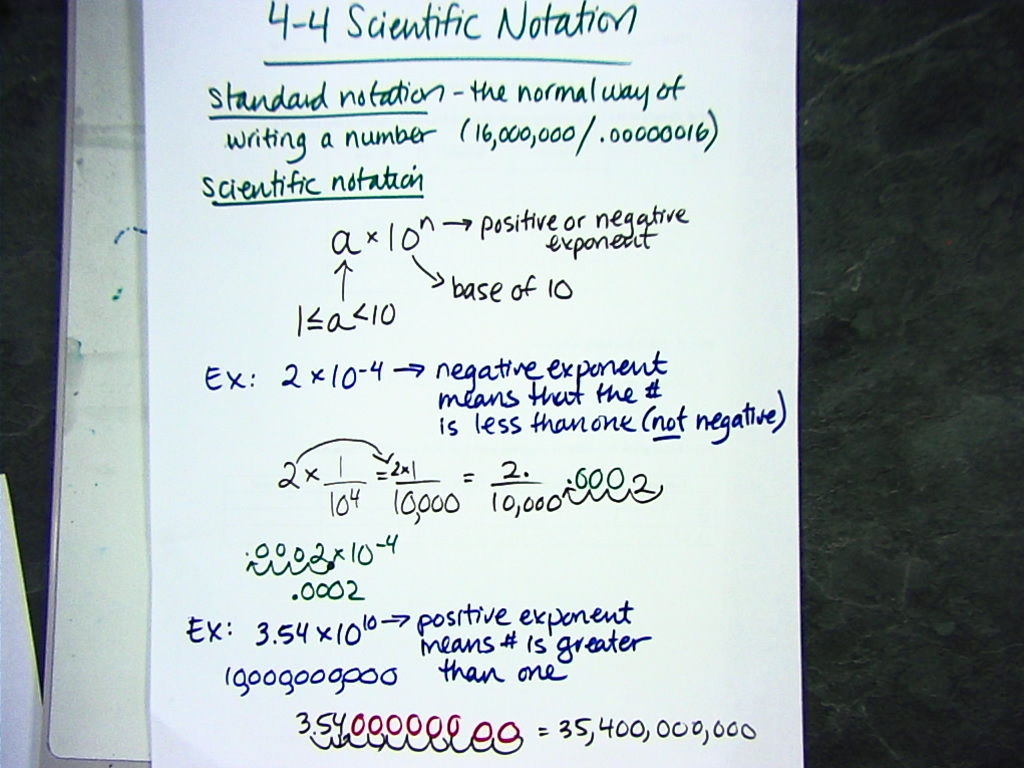 4-4 Scientific Notation
standard notation - the normal way of
writing a number (16,000,000/.00000016)
scientific notation
a × 10ⁿ → positive or negative
exponent
base of 10
1 ≤ a < 10
Ex: 2 × 10⁻⁴ → negative exponent
means that the #
is less than one (not negative)
2 × 1/10⁴ = 2×1/10,000 = 2./10,000 .0002
.0002 × 10⁻⁴
.0002
Ex: 3.54 × 10¹⁰ → positive exponent
means # is greater
10,000,000,000 than one
3.5400000000 = 35,400,000,000